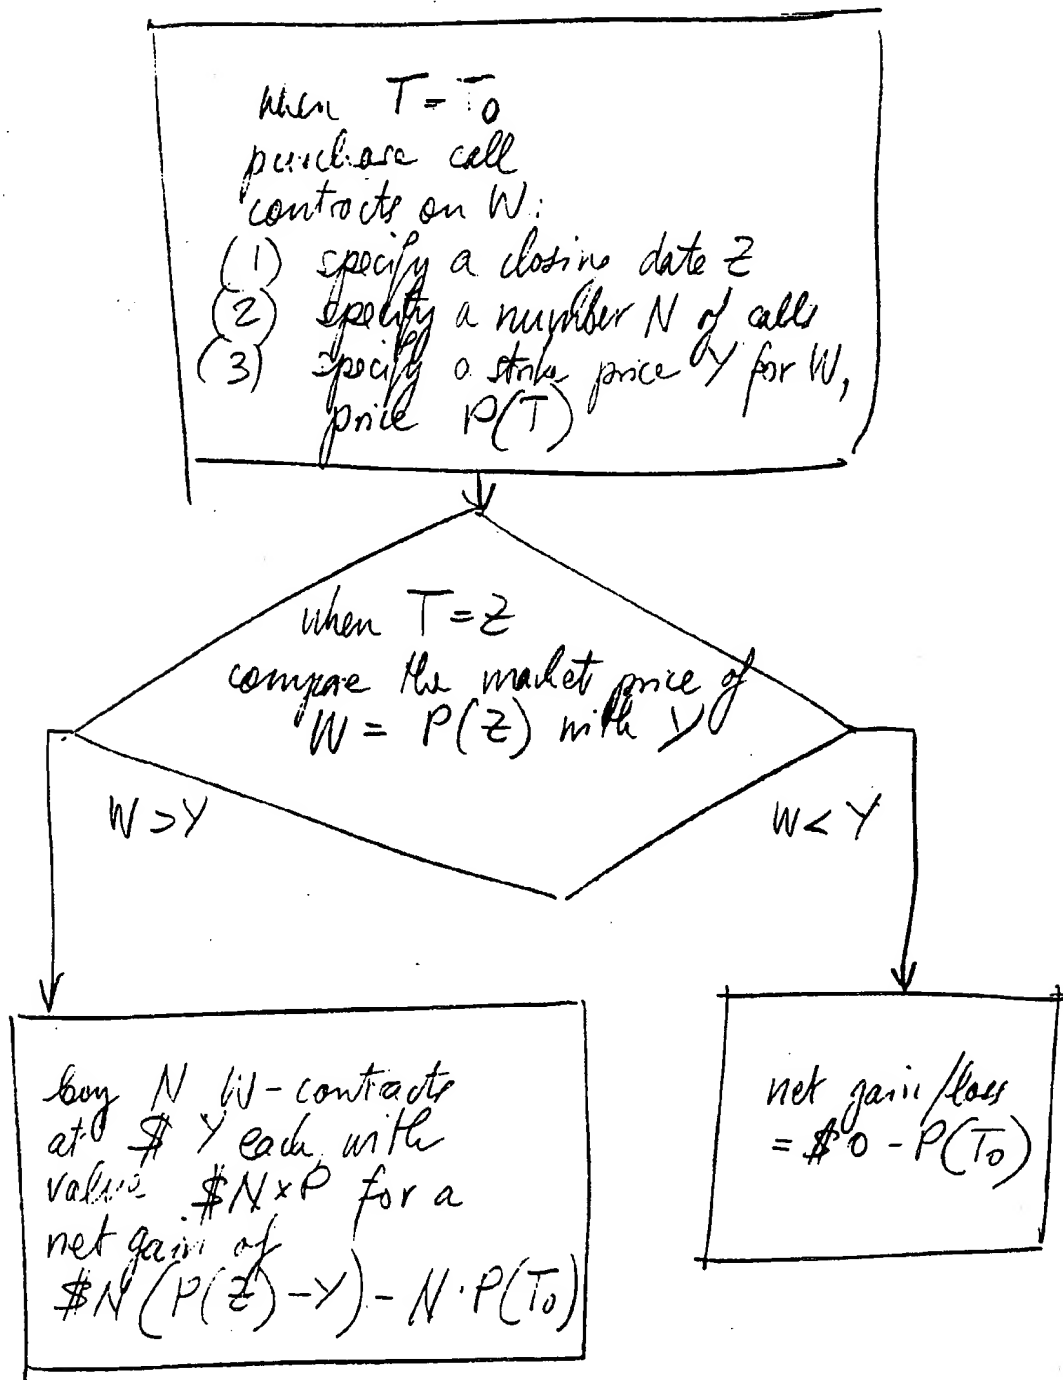 when T = T0
purchase call
contracts on W:
(1) specify a closing date Z
(2) specify a number N of calls
(3) specify a strike price Y for W,
price P(T)
when T = Z
compare the market price of
W = P(Z) with Y
W > Y
W < Y
buy N W-contracts
at $ Y each with
value $N×P for a
net gain of
$N(P(Z)-Y) - N·P(T0)
net gain/loss
= $0 - P(T0)